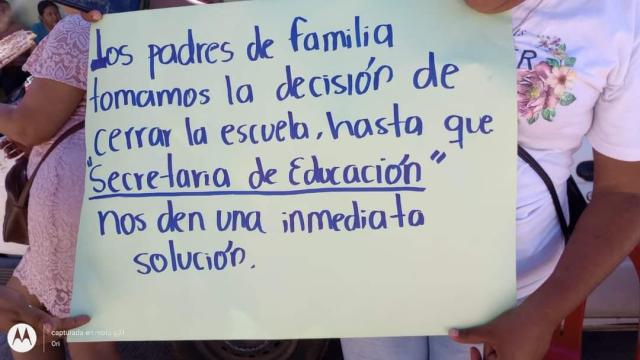 Los padres de familia
tomamos la decisión de
cerrar la escuela, hasta que
"Secretaria de Educación"
nos den una inmediata
solución.
R
capturada en moto g31
Ori